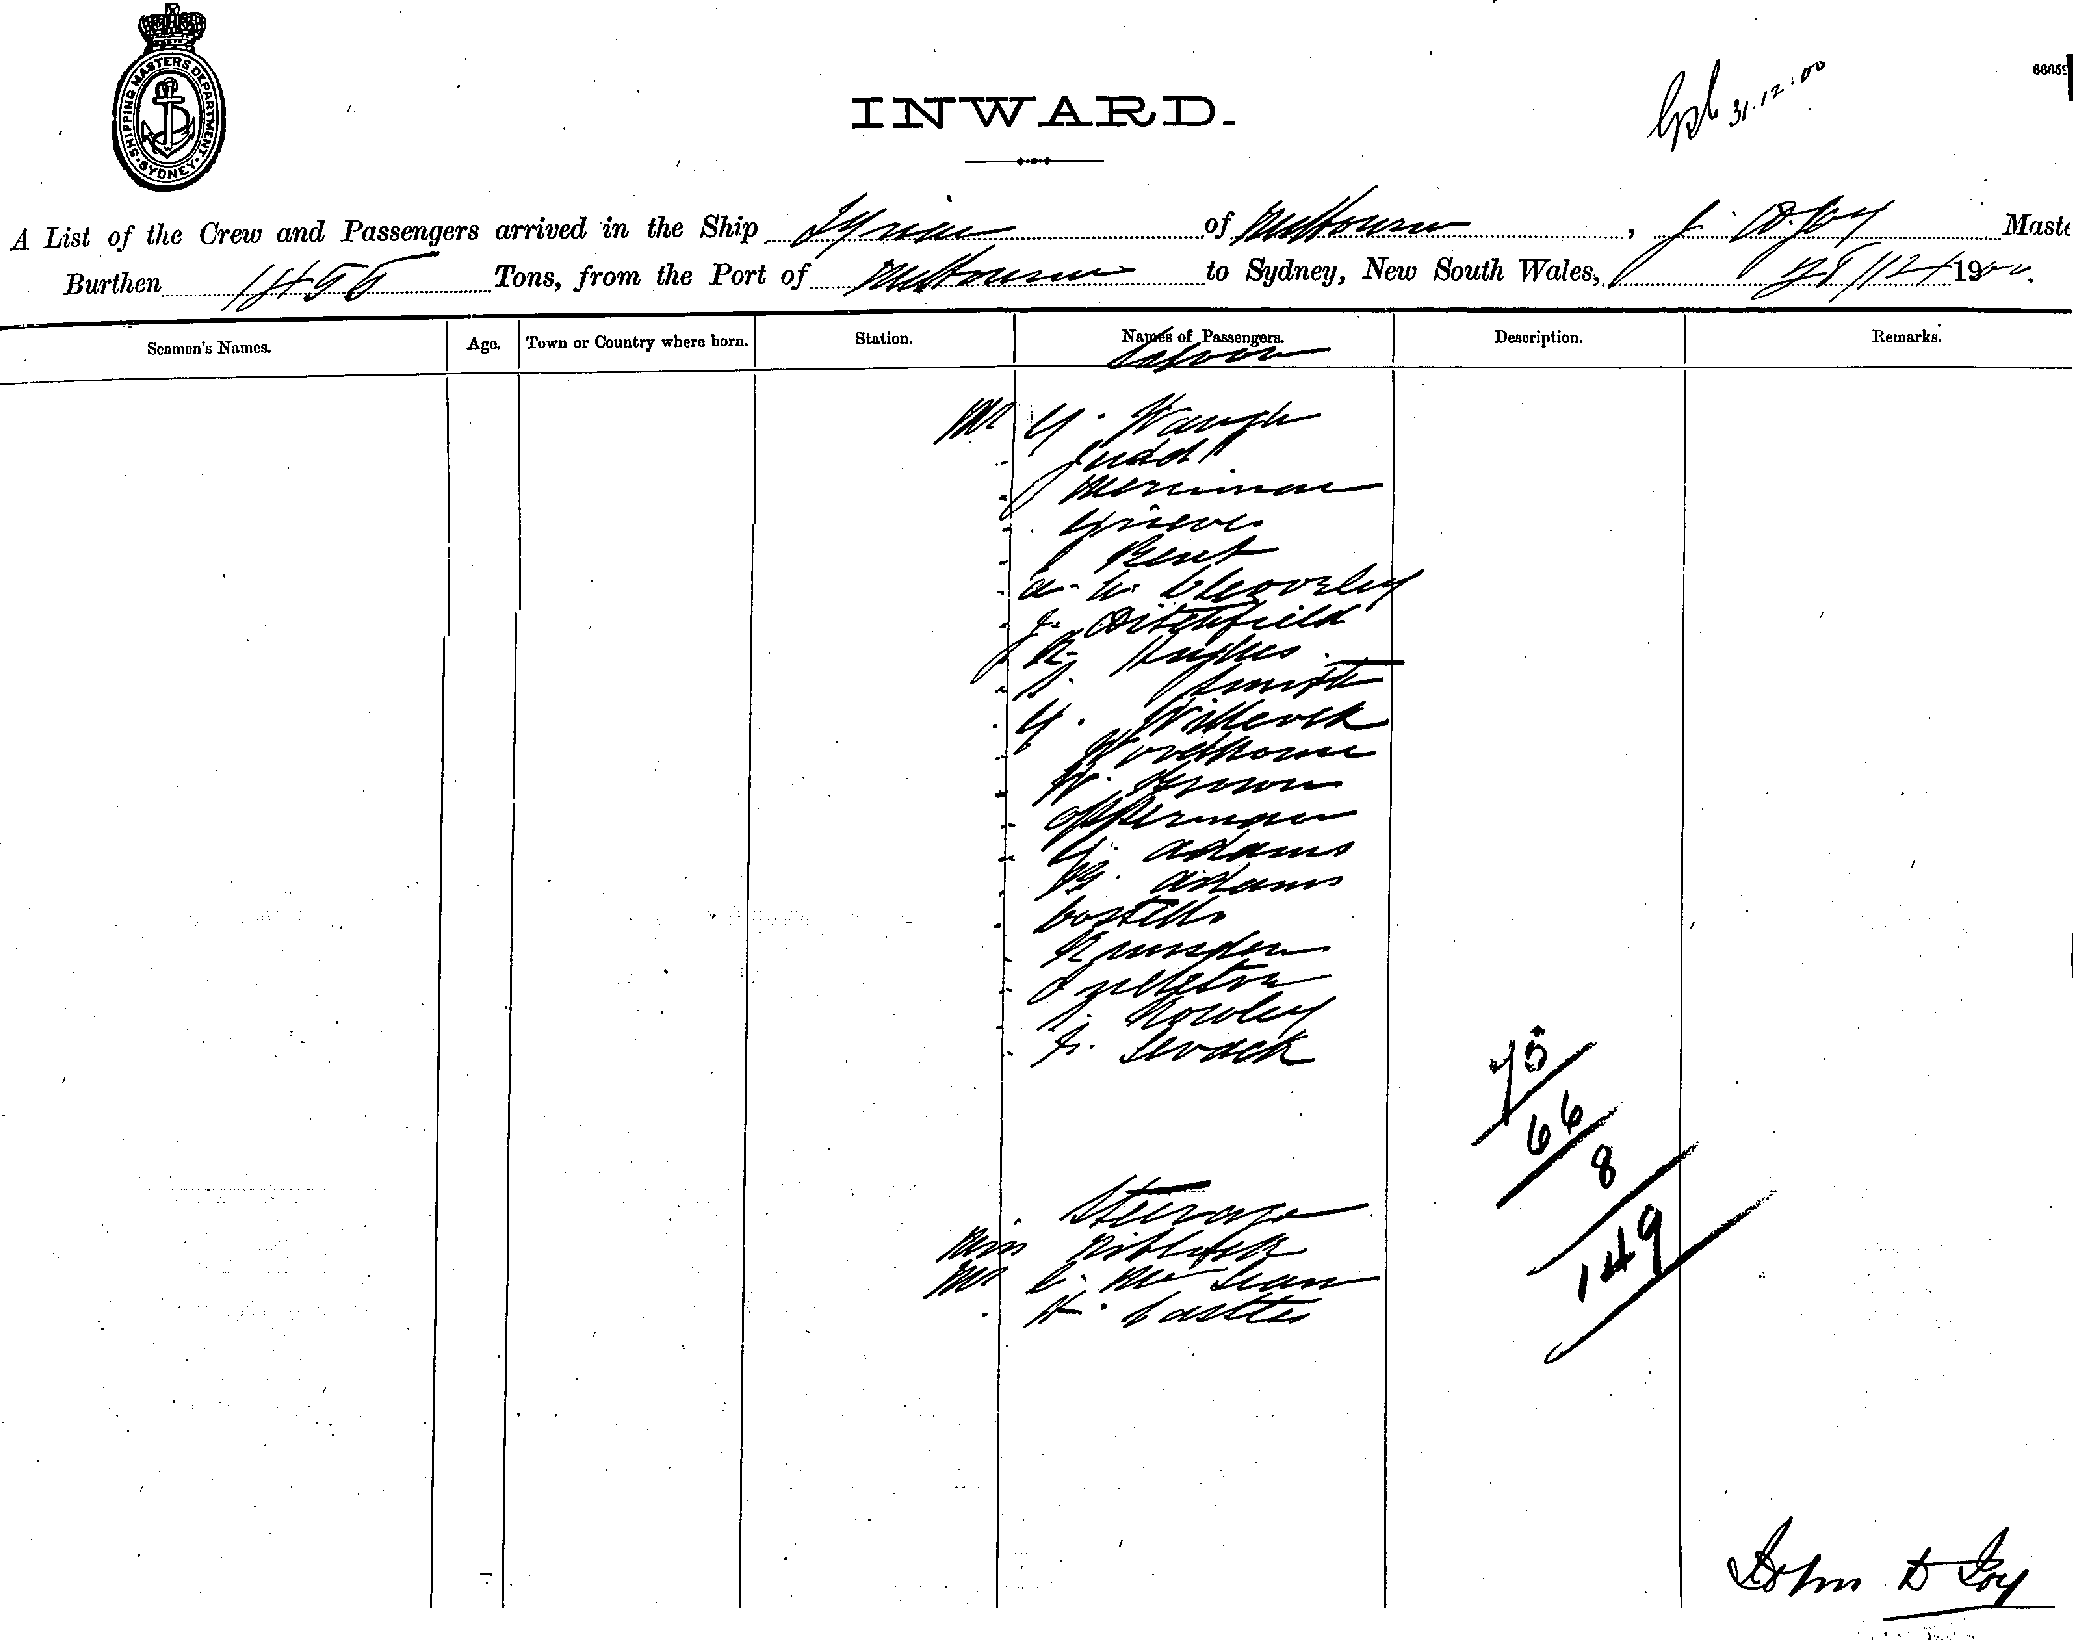 SHIPPING MASTERS DEPARTMENT
SYDNEY
31.12.00
INWARD.
A List of the Crew and Passengers arrived in the Ship Tyrian of Melbourne, J. D. Joy Maste
Burthen 1455 Tons, from the Port of Melbourne to Sydney, New South Wales, 28/12/1900.
Seamen's Names. Age. Town or Country where born. Station. Names of Passengers. Description. Remarks.
Saloon
Mr G. Waugh
Judd
Merriman
Grieve
Bent
A. W. Cleverley
J. Ditchfield
R. Hughes
Smith
G. Willcock
Woodhouse
W. Brown
Opperman
G. Adams
Adams
Costello
Rowley
Levack
75
66
8
149
Steerage
Miss Niblock
Mr C. McLean
H. Castles
John D Joy